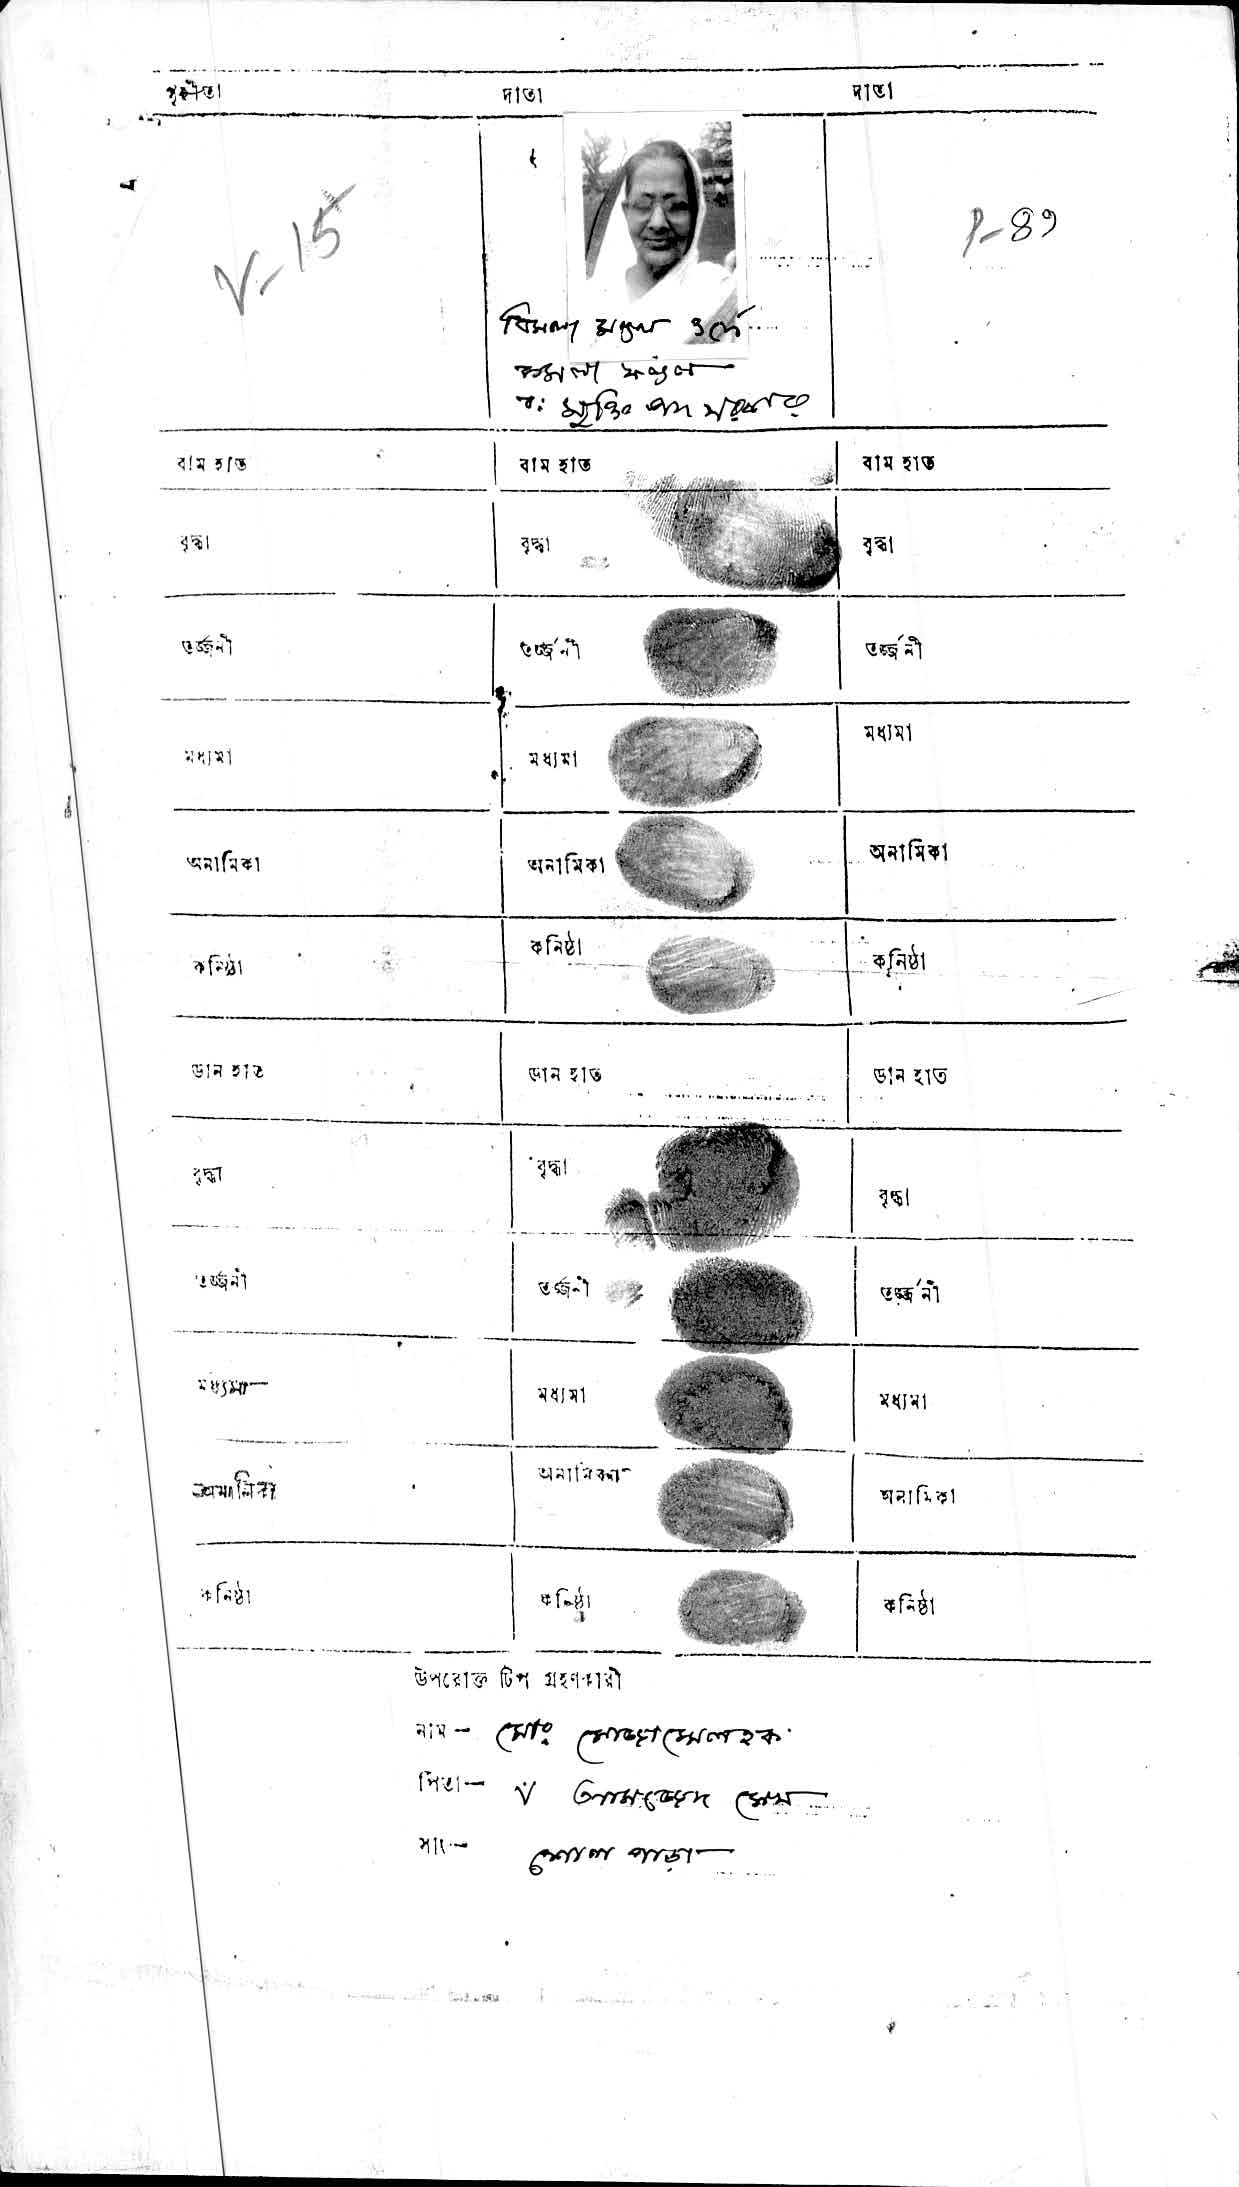 গৃহীতা দাতা দাতা
V-15
P-89
বিমলা মণ্ডল ওর্ফে
কমলা মণ্ডল
ব:
বাম হাত বাম হাত বাম হাত
বৃদ্ধা বৃদ্ধা বৃদ্ধা
তর্জ্জনী তর্জ্জনী তর্জ্জনী
মধ্যমা মধ্যমা মধ্যমা
অনামিকা অনামিকা অনামিকা
কনিষ্ঠা কনিষ্ঠা কনিষ্ঠা
ডান হাত ডান হাত ডান হাত
বৃদ্ধা বৃদ্ধা বৃদ্ধা
তর্জ্জনী তর্জ্জনী তর্জ্জনী
মধ্যমা মধ্যমা মধ্যমা
অনামিকা অনামিকা
কনিষ্ঠা কনিষ্ঠা কনিষ্ঠা
উপরোক্ত টিপ গ্রহণকারী
নাম— মোঃ মোজাম্মেলহক
পিতা—
সাং—